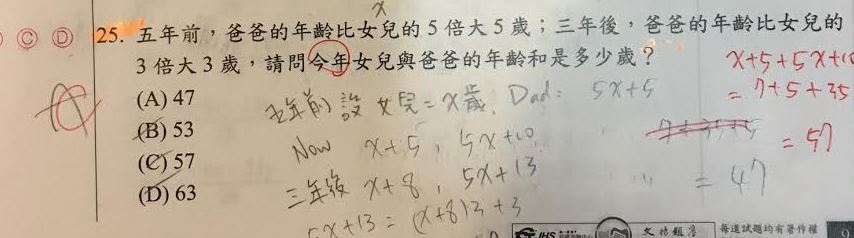 x
Ⓒ Ⓓ 25. 五年前，爸爸的年齡比女兒的 5 倍大 5 歲；三年後，爸爸的年齡比女兒的
3 倍大 3 歲，請問今年女兒與爸爸的年齡和是多少歲？
x+5+5x+10
= 7+5+35
= 57
(A) 47
(B) 53
(C) 57
(D) 63
五年前 設 女兒=x歲, Dad: 5x+5
Now x+5, 5x+10
= 47
三年後 x+8, 5x+13
5x+13 = (x+8)3+3
每道試題均有著作權
9